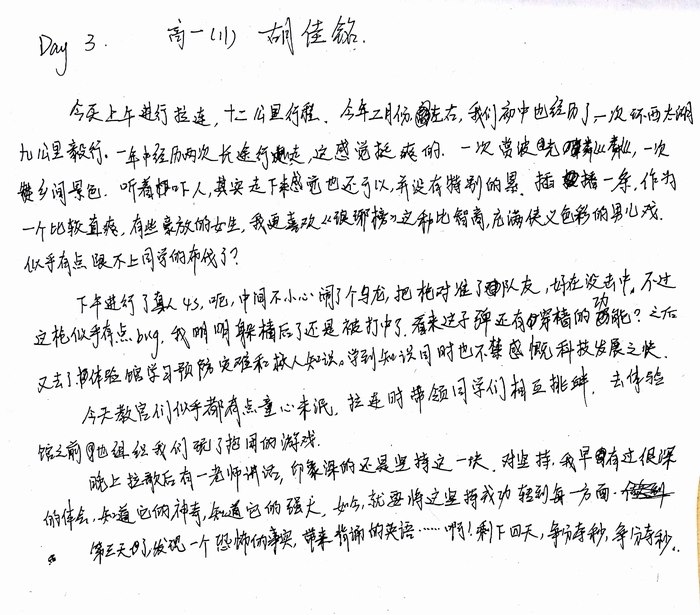 Day 3. 高一(11) 胡佳铭.
今天上午进行拉连,十二公里行程. 今年二月份左右,我们初中也经历了一次环西太湖
九公里毅行. 一年中经历两次长途行走,这感觉挺爽的. 一次赏波光粼粼,一次
乡间景色. 听着吓人,其实走下来感觉也还可以,并没有特别的累. 插播一条,作为
一个比较直爽,有些豪放的女生,我更喜欢《琅琊榜》这种比智商,充满侠义色彩的男儿戏.
似乎有点跟不上同学的步伐了?
下午进行了真人 cs. 呃,中间不小心闹了个乌龙,把枪对准了队友,好在没击中. 不过
这枪似乎有点 bug, 我明明躲墙后了还是被打中了. 看来这子弹还有穿墙的功能? 之后
又去了体验馆学习预防灾难和救人知识。学到知识同时也不禁感慨科技发展之快.
今天教官们似乎都有点童心未泯. 拉连时带领同学们相互挑衅. 去体验
馆之前也组织我们玩了抱团的游戏.
晚上拉歌后有一老师讲话, 印象深的还是坚持这一块. 对坚持, 我早有过很深
的体会, 知道它的神奇, 知道它的强大. 如今, 就要将这坚持成功转到每一方面.
第三天了, 发现一个恐怖的事实, 带来背诵的英语…… 啊! 剩下四天, 争分夺秒, 争分夺秒..